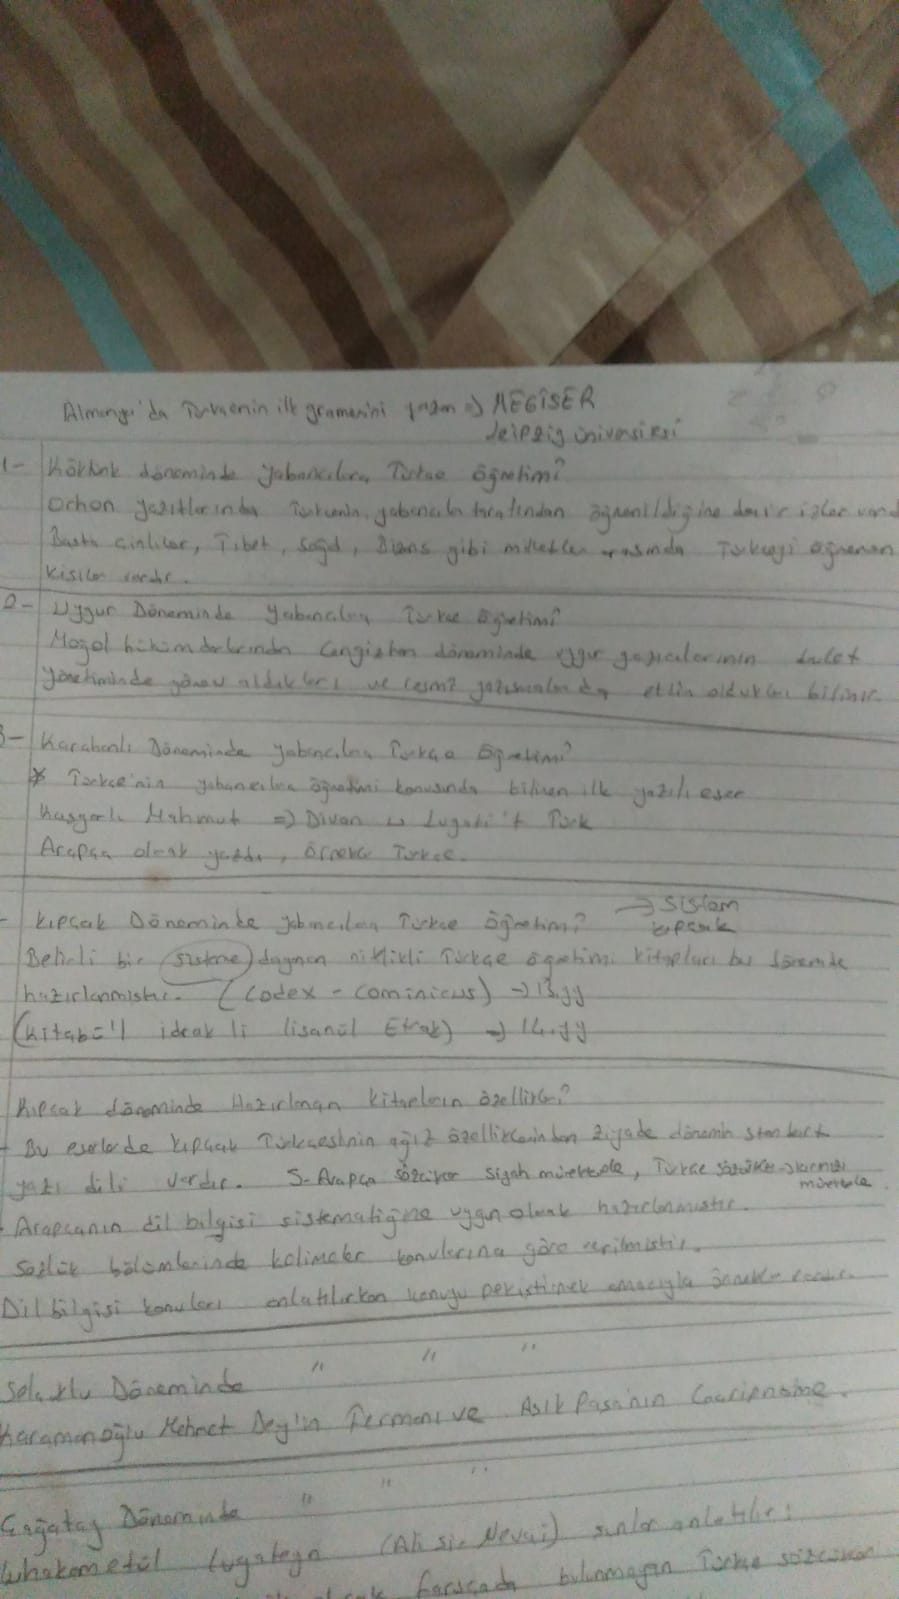 Almanya'da Türkçenin ilk gramerini yazan => MEGİSER
Leipzig üniversitesi
1- Köktürk döneminde yabancılara Türkçe öğretimi?
Orhon yazıtlarında Türkçenin yabancılar tarafından öğrenildiğine dair izler vard
Başta Çinliler, Tibet, Soğd, Bizans gibi milletler arasında Türkçeyi öğrenen
kişiler vardır.
2- Uygur Döneminde Yabancılara Türkçe öğretimi?
Moğol hükümdarlarından Cengizhan döneminde uygur yazıcılarının devlet
yönetiminde görev aldıkları ve resmi yazışmalarda etkin oldukları bilinir.
3- Karahanlı Döneminde yabancılara Türkçe öğretimi?
* Türkçe'nin yabancılara öğretimi konusunda bilinen ilk yazılı eser
Kaşgarlı Mahmut => Divan ü Lugati't Türk
Arapça olarak yazdı, örnekler Türkçe.
- Kıpçak Döneminde yabancılara Türkçe öğretim? → sislam
kıpçak
Belirli bir sisteme dayanan nitlikli Türkçe öğretimi kitapları bu dönemde
hazırlanmıştır. (Codex - cominicus) → 13.yy
(Kitabü'l idrak li lisanül Etrak) → 14.yy
Kıpçak döneminde Hazırlanan kitapların özellikleri?
- Bu eserlerde kıpçak Türkçesinin ağız özelliklerinden ziyade dönemin standart
yazı dili vardır. 5- Arapça sözcükler siyah mürekkeple, Türkçe sözcükler kırmızı
mürekkeple.
- Arapçanın dil bilgisi sistematiğine uygun olarak hazırlanmıştır.
Sözlük bölümlerinde kelimeler konularına göre verilmiştir.
Dil bilgisi konuları anlatılırken konuyu pekiştirmek amacıyla örnekler vardır.
Selçuklu Döneminde " " "
Karamanoğlu Mehmet Bey'in Fermanı ve Aşık Paşa'nın Garipname.
Çağatay Döneminde " " "
Muhakemetül Lugateyn (Ali şir Nevai) şunlar anlatılır:
farsçada bulunmayan Türkçe sözcükler